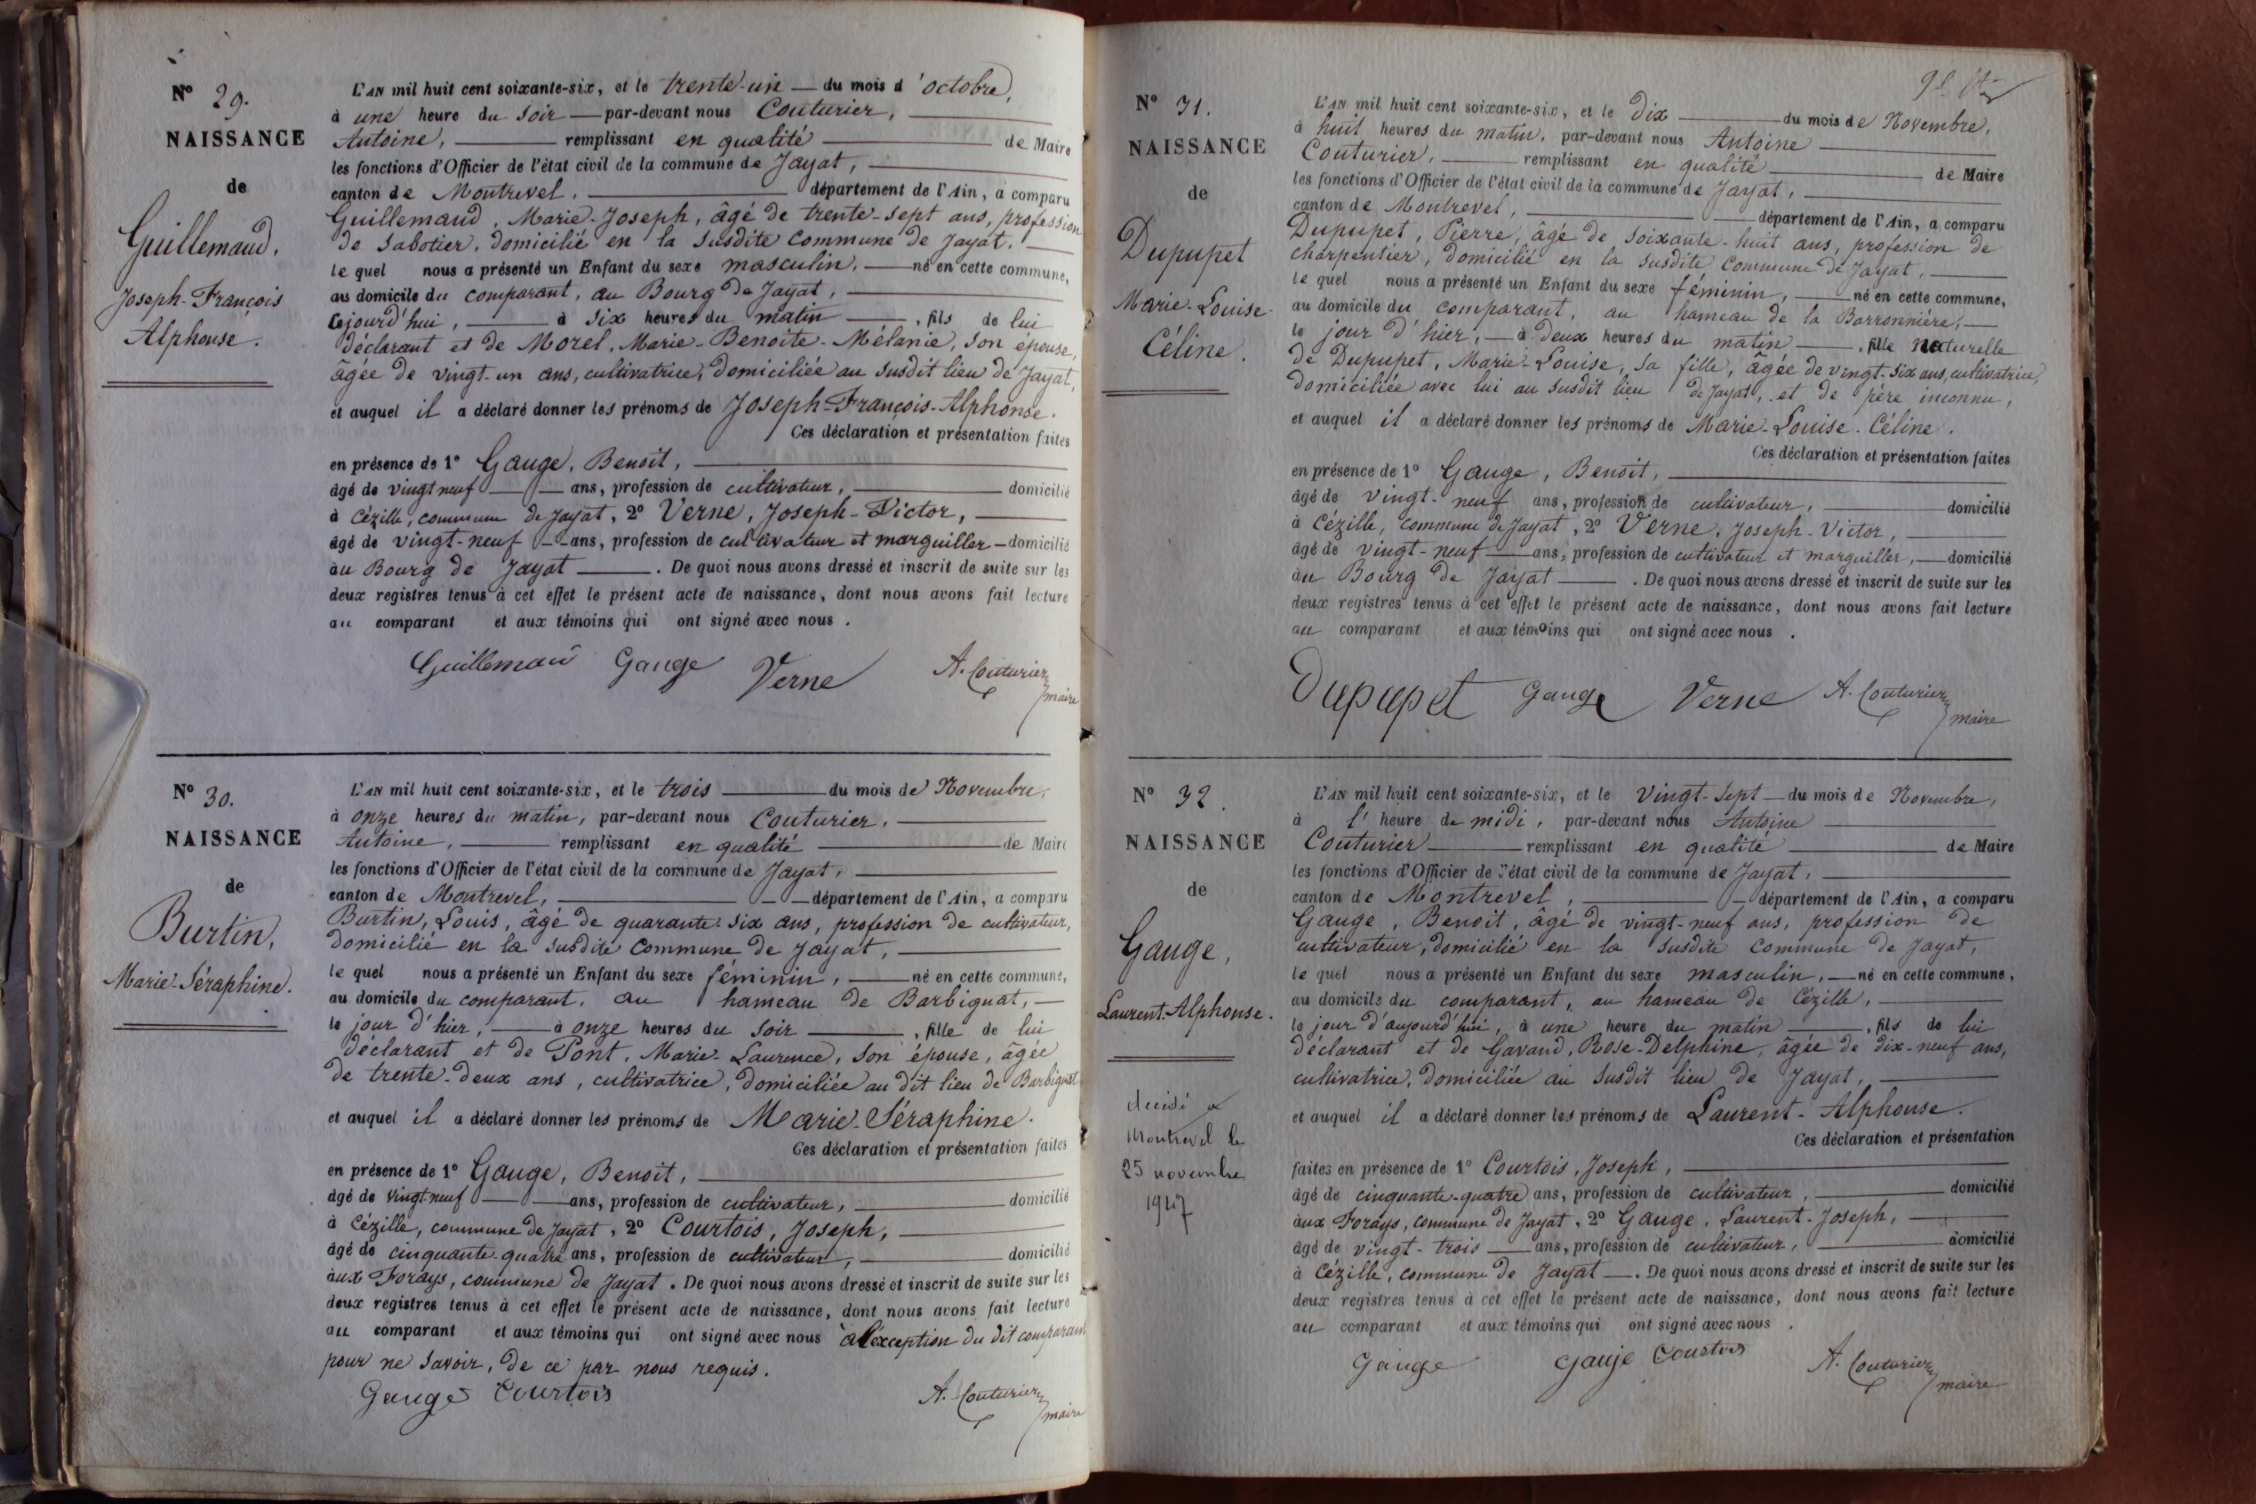 N° 29.
NAISSANCE
de
Guillemaud,
Joseph-François
Alphonse.
L'AN mil huit cent soixante-six, et le trente-un du mois d'octobre,
à une heure du soir par-devant nous Couturier,
Antoine, remplissant en qualité de Maire
les fonctions d'Officier de l'état civil de la commune de Jayat,
canton de Montrevel, département de l'Ain, a comparu
Guillemaud, Marie-Joseph, âgé de trente-sept ans, profession
de sabotier, domicilié en la susdite commune de Jayat.
le quel nous a présenté un Enfant du sexe masculin, né en cette commune,
au domicile du comparant, au Bourg de Jayat,
Cejourd'hui, à six heures du matin, fils de lui
déclarant et de Morel, Marie-Benoite-Mélanie, son épouse,
âgée de vingt-un ans, cultivatrice, domiciliée au susdit lieu de Jayat,
et auquel il a déclaré donner les prénoms de Joseph-François-Alphonse.
Ces déclaration et présentation faites
en présence de 1° Gauge, Benoit,
âgé de vingt neuf ans, profession de cultivateur, domicilié
à Cézille, commune de Jayat, 2° Verne, Joseph-Victor,
âgé de vingt-neuf ans, profession de cultivateur et marguiller domicilié
au Bourg de Jayat. De quoi nous avons dressé et inscrit de suite sur les
deux registres tenus à cet effet le présent acte de naissance, dont nous avons fait lecture
au comparant et aux témoins qui ont signé avec nous.
Guillemaud Gauge Verne A. Couturier
maire
N° 30.
NAISSANCE
de
Burtin,
Marie-Séraphine.
L'AN mil huit cent soixante-six, et le trois du mois de Novembre,
à onze heures du matin, par-devant nous Couturier,
Antoine, remplissant en qualité de Maire
les fonctions d'Officier de l'état civil de la commune de Jayat,
canton de Montrevel, département de l'Ain, a comparu
Burtin, Louis, âgé de quarante-six ans, profession de cultivateur,
domicilié en la susdite commune de Jayat,
le quel nous a présenté un Enfant du sexe féminin, né en cette commune,
au domicile du comparant, au hameau de Barbignat,
le jour d'hier, à onze heures du soir, fille de lui
déclarant et de Pont, Marie-Laurence, son épouse, âgée
de trente-deux ans, cultivatrice, domiciliée au dit lieu de Barbignat
et auquel il a déclaré donner les prénoms de Marie-Séraphine.
Ces déclaration et présentation faites
en présence de 1° Gauge, Benoit,
âgé de vingt neuf ans, profession de cultivateur, domicilié
à Cézille, commune de Jayat, 2° Courtois, Joseph,
âgé de cinquante-quatre ans, profession de cultivateur, domicilié
aux Forays, commune de Jayat. De quoi nous avons dressé et inscrit de suite sur les
deux registres tenus à cet effet le présent acte de naissance, dont nous avons fait lecture
au comparant et aux témoins qui ont signé avec nous à l'exception du dit comparant
pour ne savoir, de ce par nous requis.
Gauge Courtois A. Couturier
maire
N° 31.
NAISSANCE
de
Dupupet
Marie-Louise-
Céline.
L'AN mil huit cent soixante-six, et le dix du mois de Novembre,
à huit heures du matin, par-devant nous Antoine
Couturier, remplissant en qualité de Maire
les fonctions d'Officier de l'état civil de la commune de Jayat,
canton de Montrevel, département de l'Ain, a comparu
Dupupet, Pierre, âgé de soixante-huit ans, profession de
charpentier, domicilié en la susdite commune de Jayat,
le quel nous a présenté un Enfant du sexe féminin, né en cette commune,
au domicile du comparant, au hameau de la Barronnière,
le jour d'hier, à deux heures du matin, fille naturelle
de Dupupet, Marie-Louise, sa fille, âgée de vingt-six ans, cultivatrice,
domiciliée avec lui au susdit lieu de Jayat, et de père inconnu,
et auquel il a déclaré donner les prénoms de Marie-Louise-Céline.
Ces déclaration et présentation faites
en présence de 1° Gauge, Benoit,
âgé de vingt-neuf ans, profession de cultivateur, domicilié
à Cézille, commune de Jayat, 2° Verne, Joseph-Victor,
âgé de vingt-neuf ans, profession de cultivateur et marguiller, domicilié
au Bourg de Jayat. De quoi nous avons dressé et inscrit de suite sur les
deux registres tenus à cet effet le présent acte de naissance, dont nous avons fait lecture
au comparant et aux témoins qui ont signé avec nous.
Dupupet Gauge Verne A. Couturier
maire
N° 32.
NAISSANCE
de
Gauge,
Laurent-Alphonse.
décédé à
Montrevel le
25 novembre
1947
L'AN mil huit cent soixante-six, et le vingt-sept du mois de Novembre,
à l'heure de midi, par-devant nous Antoine
Couturier remplissant en qualité de Maire
les fonctions d'Officier de l'état civil de la commune de Jayat,
canton de Montrevel, département de l'Ain, a comparu
Gauge, Benoit, âgé de vingt-neuf ans, profession de
cultivateur, domicilié en la susdite commune de Jayat,
le quel nous a présenté un Enfant du sexe masculin, né en cette commune,
au domicile du comparant, au hameau de Cézille,
le jour d'aujourd'hui, à une heure du matin, fils de lui
déclarant et de Gavand, Rose-Delphine, âgée de dix-neuf ans,
cultivatrice, domiciliée au susdit lieu de Jayat,
et auquel il a déclaré donner les prénoms de Laurent-Alphonse.
Ces déclaration et présentation
faites en présence de 1° Courtois, Joseph,
âgé de cinquante-quatre ans, profession de cultivateur, domicilié
aux Forays, commune de Jayat, 2° Gauge, Laurent-Joseph,
âgé de vingt-trois ans, profession de cultivateur, domicilié
à Cézille, commune de Jayat. De quoi nous avons dressé et inscrit de suite sur les
deux registres tenus à cet effet le présent acte de naissance, dont nous avons fait lecture
au comparant et aux témoins qui ont signé avec nous.
Gauge Gauje Courtois A. Couturier
maire